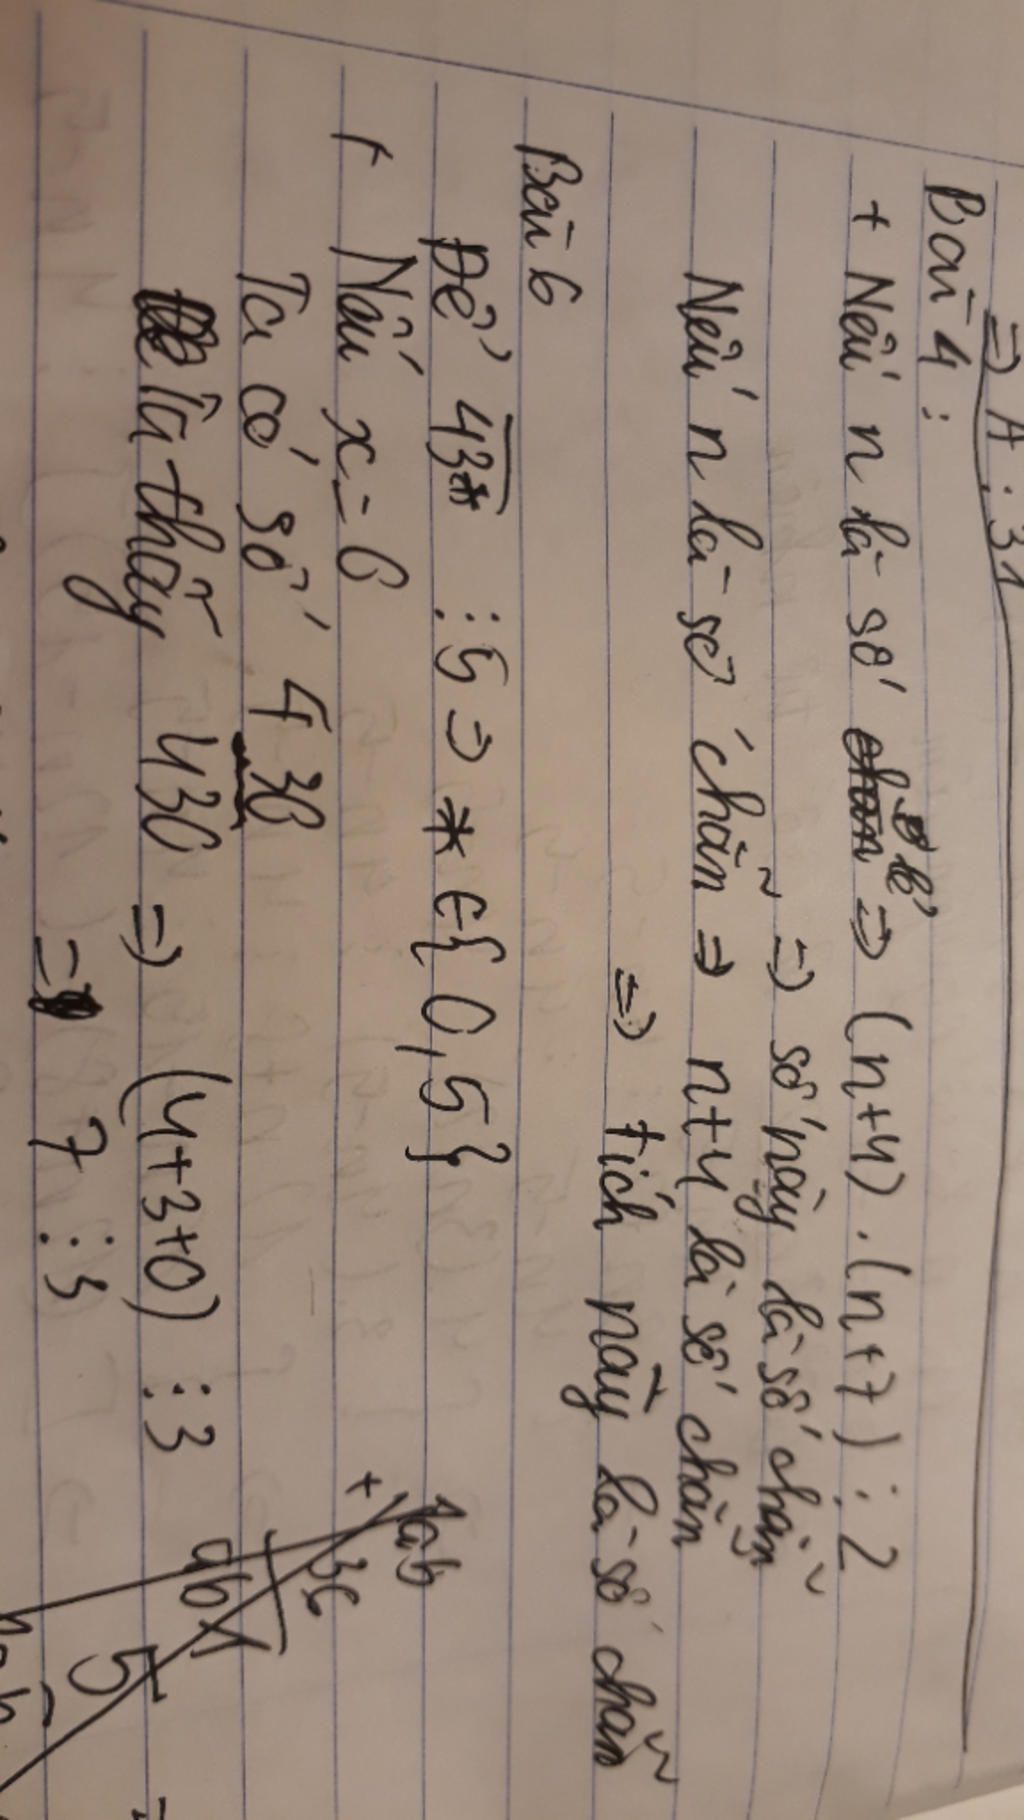 => A ⋮ 31
Bài 4 :
+ Nếu n là số lẻ => (n+4) . (n+7) ⋮ 2
=> số này là số chẵn
Nếu n là số chẵn => n+4 là số chẵn
=> tích này là số chẵn
Bài 6
Để 43* ⋮ 5 => * ∈ { 0, 5 }
+ Nếu x = 0
Ta có số 430
Ta thấy 430 => (4+3+0) ⋮ 3
=> 7 ⋮ 3
1ab
+ 36
ab1
5